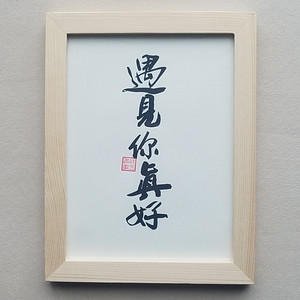 遇見你真好